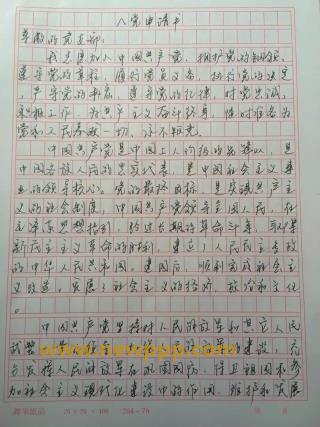 入党申请书
尊敬的党支部:
我志愿加入中国共产党,拥护党的纲领,
遵守党的章程,履行党员义务,执行党的决定
,严守党的纪律,保守党的秘密,对党忠诚,
积极工作,为共产主义奋斗终身,随时准备为
党和人民牺牲一切,永不叛党。
中国共产党是中国工人阶级的先锋队,是
中国各族人民的代表,是中国社会主义事
业的领导核心。党的最终目标,是实现共产主
义的社会制度。中国共产党领导全国人民,在
毛泽东思想指引下,经过长期的革命斗争,取得
新民主主义革命的胜利,建立了人民民主专政
的中华人民共和国。建国后,顺利完成社会主
义改造,发展了社会主义的经济、政治和文化
。
中国共产党坚持对人民解放军和其它人民
武装
建设,充
分发挥人民解放军在巩固国防、保卫祖国和参
加社会主义现代化建设中的作用,维护和发展
www.newppp.com
20×20=400
264-76
第 页